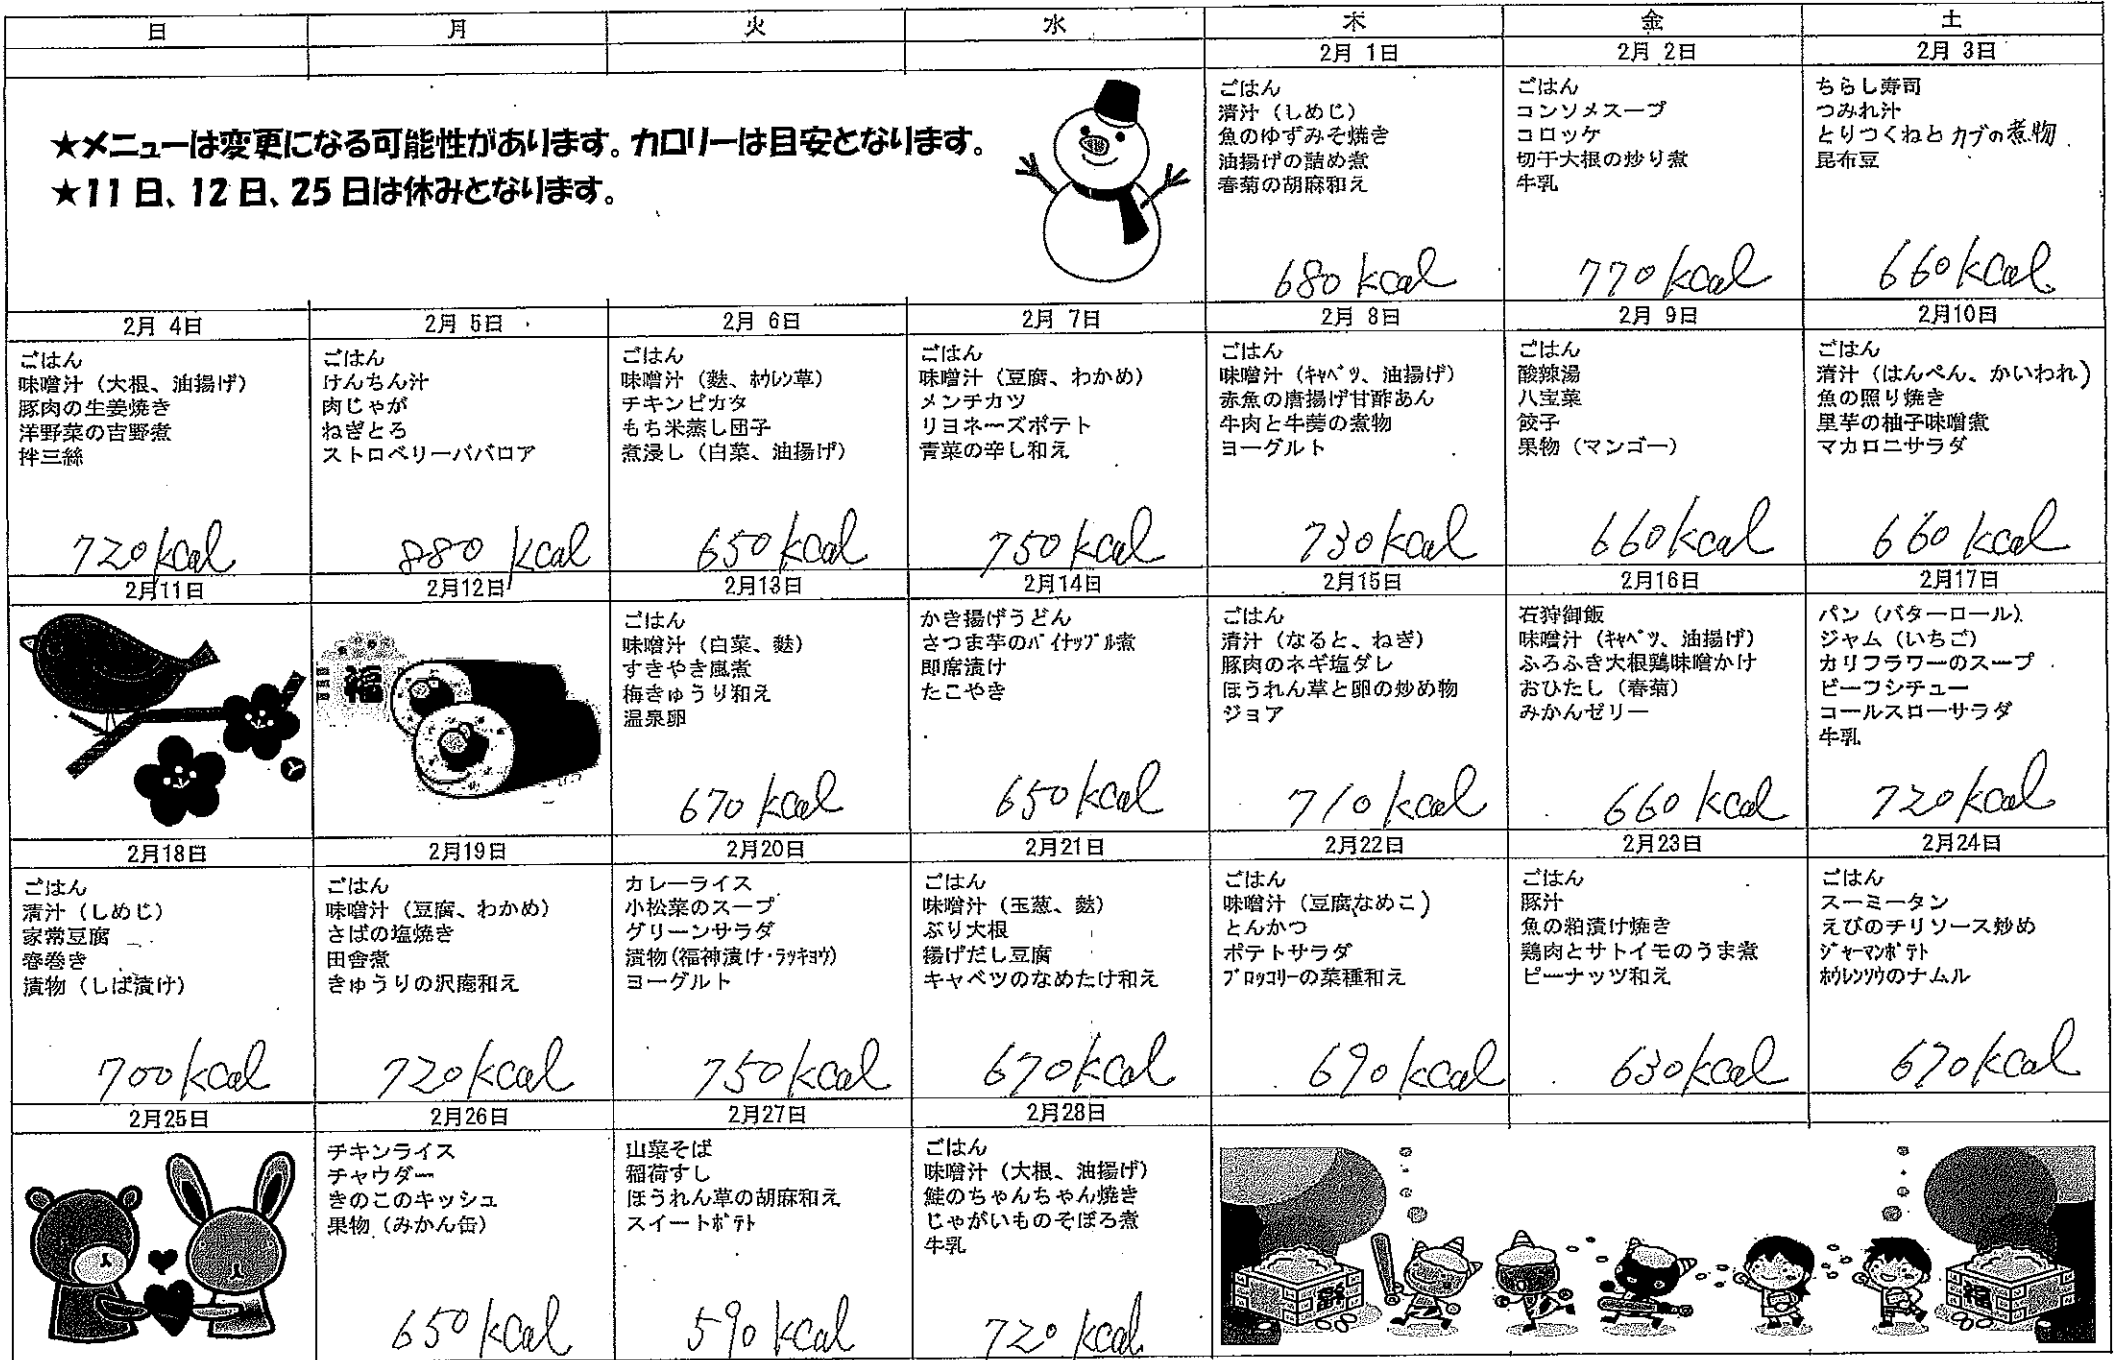 日 月 火 水 木 金 土
★メニューは変更になる可能性があります。カロリーは目安となります。
★11日、12日、25日は休みとなります。
2月 1日
ごはん
清汁（しめじ）
魚のゆずみそ焼き
油揚げの詰め煮
春菊の胡麻和え
680kcal
2月 2日
ごはん
コンソメスープ
コロッケ
切干大根の炒り煮
牛乳
770kcal
2月 3日
ちらし寿司
つみれ汁
とりつくねとカブの煮物
昆布豆
660kcal
2月 4日
ごはん
味噌汁（大根、油揚げ）
豚肉の生姜焼き
洋野菜の吉野煮
拌三絲
720kcal
2月 5日
ごはん
けんちん汁
肉じゃが
ねぎとろ
ストロベリーババロア
880kcal
2月 6日
ごはん
味噌汁（麩、ﾎｳﾚﾝ草）
チキンピカタ
もち米蒸し団子
煮浸し（白菜、油揚げ）
650kcal
2月 7日
ごはん
味噌汁（豆腐、わかめ）
メンチカツ
リヨネーズポテト
青菜の辛し和え
750kcal
2月 8日
ごはん
味噌汁（ｷｬﾍﾞﾂ、油揚げ）
赤魚の唐揚げ甘酢あん
牛肉と牛蒡の煮物
ヨーグルト
730kcal
2月 9日
ごはん
酸辣湯
八宝菜
餃子
果物（マンゴー）
660kcal
2月10日
ごはん
清汁（はんぺん、かいわれ）
魚の照り焼き
里芋の柚子味噌煮
マカロニサラダ
660kcal
2月11日
2月12日
福
2月13日
ごはん
味噌汁（白菜、麩）
すきやき風煮
梅きゅうり和え
温泉卵
670kcal
2月14日
かき揚げうどん
さつま芋のﾊﾟｲﾅｯﾌﾟﾙ煮
即席漬け
たこやき
650kcal
2月15日
ごはん
清汁（なると、ねぎ）
豚肉のネギ塩ダレ
ほうれん草と卵の炒め物
ジョア
710kcal
2月16日
石狩御飯
味噌汁（ｷｬﾍﾞﾂ、油揚げ）
ふろふき大根鶏味噌かけ
おひたし（春菊）
みかんゼリー
660kcal
2月17日
パン（バターロール）
ジャム（いちご）
カリフラワーのスープ
ビーフシチュー
コールスローサラダ
牛乳
720kcal
2月18日
ごはん
清汁（しめじ）
家常豆腐
春巻き
漬物（しば漬け）
700kcal
2月19日
ごはん
味噌汁（豆腐、わかめ）
さばの塩焼き
田舎煮
きゅうりの沢庵和え
720kcal
2月20日
カレーライス
小松菜のスープ
グリーンサラダ
漬物(福神漬け･ﾗｯｷｮｳ)
ヨーグルト
750kcal
2月21日
ごはん
味噌汁（玉葱、麩）
ぶり大根
揚げだし豆腐
キャベツのなめたけ和え
670kcal
2月22日
ごはん
味噌汁（豆腐、なめこ）
とんかつ
ポテトサラダ
ﾌﾞﾛｯｺﾘｰの菜種和え
690kcal
2月23日
ごはん
豚汁
魚の粕漬け焼き
鶏肉とサトイモのうま煮
ピーナッツ和え
630kcal
2月24日
ごはん
スーミータン
えびのチリソース炒め
ｼﾞｬｰﾏﾝﾎﾟﾃﾄ
ﾎｳﾚﾝｿｳのナムル
670kcal
2月25日
2月26日
チキンライス
チャウダー
きのこのキッシュ
果物（みかん缶）
650kcal
2月27日
山菜そば
稲荷すし
ほうれん草の胡麻和え
スイートﾎﾟﾃﾄ
590kcal
2月28日
ごはん
味噌汁（大根、油揚げ）
鮭のちゃんちゃん焼き
じゃがいものそぼろ煮
牛乳
720kcal
福